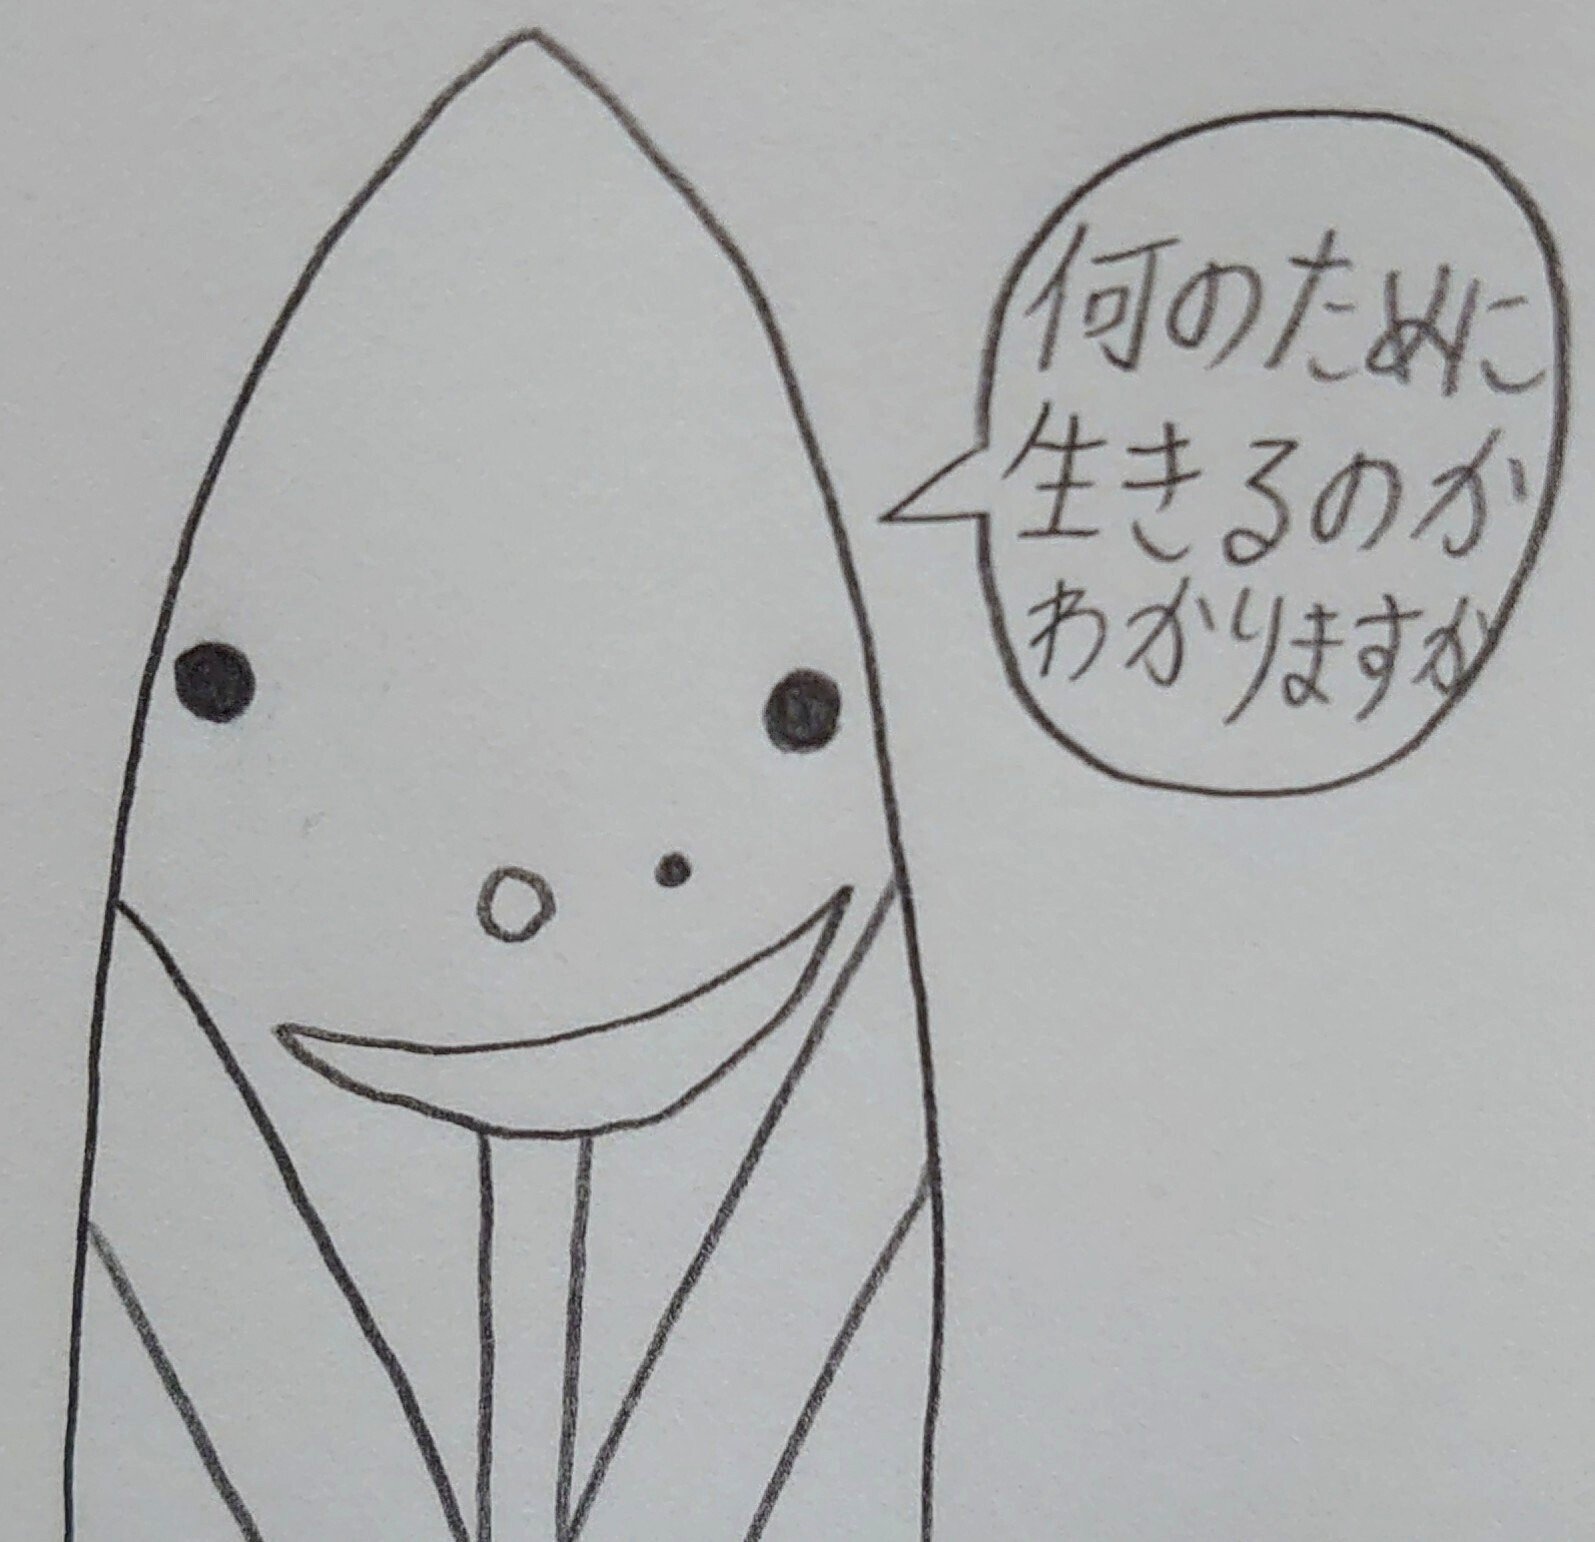 何のために
生きるのか
わかりますか